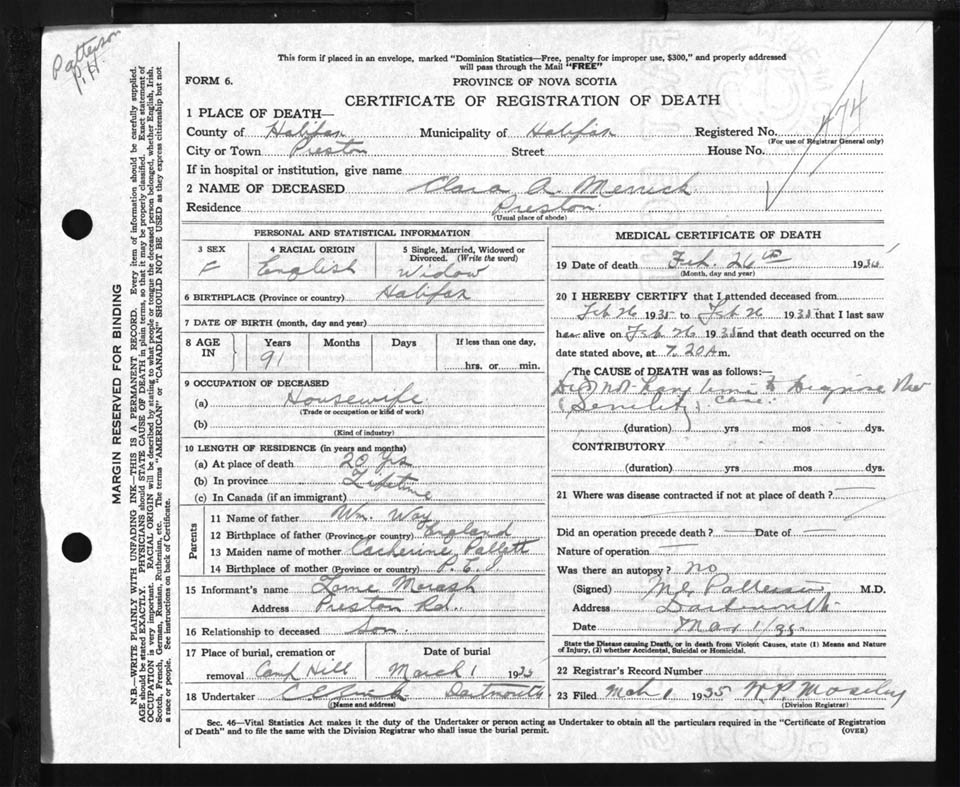 Patterson
P.H.
This form if placed in an envelope, marked "Dominion Statistics—Free, penalty for improper use, $300," and properly addressed
will pass through the Mail "FREE"
FORM 6.
PROVINCE OF NOVA SCOTIA
CERTIFICATE OF REGISTRATION OF DEATH
474
1 PLACE OF DEATH—
County of Halifax Municipality of Halifax Registered No.
(For use of Registrar General only)
City or Town Preston Street House No.
If in hospital or institution, give name
2 NAME OF DECEASED Clara A. 
Residence Preston
(Usual place of abode)
PERSONAL AND STATISTICAL INFORMATION
3 SEX 4 RACIAL ORIGIN 5 Single, Married, Widowed or
Divorced. (Write the word)
F English Widow
6 BIRTHPLACE (Province or country) Halifax
7 DATE OF BIRTH (month, day and year)
8 AGE IN Years Months Days If less than one day,
91 hrs. or min.
9 OCCUPATION OF DECEASED
(a) Housewife
(Trade or occupation or kind of work)
(b)
(Kind of industry)
10 LENGTH OF RESIDENCE (in years and months)
(a) At place of death 20 Yrs
(b) In province Lifetime
(c) In Canada (if an immigrant)
Parents
11 Name of father Wm. Way
12 Birthplace of father (Province or country) England
13 Maiden name of mother Catherine Pallett
14 Birthplace of mother (Province or country) P.E.I.
15 Informant's name Morash
Address Preston Rd.
16 Relationship to deceased Son
17 Place of burial, cremation or Date of burial
removal Camp Hill March 1 1935
18 Undertaker Dartmouth
(Name and address)
MEDICAL CERTIFICATE OF DEATH
19 Date of death Feb. 26th 193
(Month, day and year)
20 I HEREBY CERTIFY that I attended deceased from
Feb 26 1935 to Feb 26 1935 that I last saw
h alive on Feb 26 1935 and that death occurred on
date stated above, at 7.20 A m.
The CAUSE of DEATH was as follows:—
Did not have time to diagnose
(Senility) case.
(duration) yrs mos dys.
CONTRIBUTORY
(duration) yrs mos dys.
21 Where was disease contracted if not at place of death?
Did an operation precede death? Date of
Nature of operation
Was there an autopsy? No
(Signed) Patterson M.D.
Address Dartmouth
Date Mar 1/35
State the Disease causing Death, or in death from Violent Causes, state (1) Means and Nature
of Injury, (2) whether Accidental, Suicidal or Homicidal.
22 Registrar's Record Number
23 Filed Mch 1 1935 Moseley
(Division Registrar)
Sec. 46—Vital Statistics Act makes it the duty of the Undertaker or person acting as Undertaker to obtain all the particulars required in the "Certificate of Registration
of Death" and to file the same with the Division Registrar who shall issue the burial permit. (OVER)
MARGIN RESERVED FOR BINDING
N.B.—WRITE PLAINLY WITH UNFADING INK—THIS IS A PERMANENT RECORD. Every item of information should be carefully supplied.
AGE should be stated EXACTLY. PHYSICIANS should STATE CAUSE OF DEATH in plain terms, so that it may be properly classified. Exact statement of
OCCUPATION is very important. RACIAL ORIGIN will be described by stating to what people or tongue the deceased person belonged, whether English, Irish,
Scotch, French, German, Russian, Ruthenian, etc. The terms "AMERICAN" or "CANADIAN" SHOULD NOT BE USED as they express citizenship but not
a race or people. See instructions on back of Certificate.